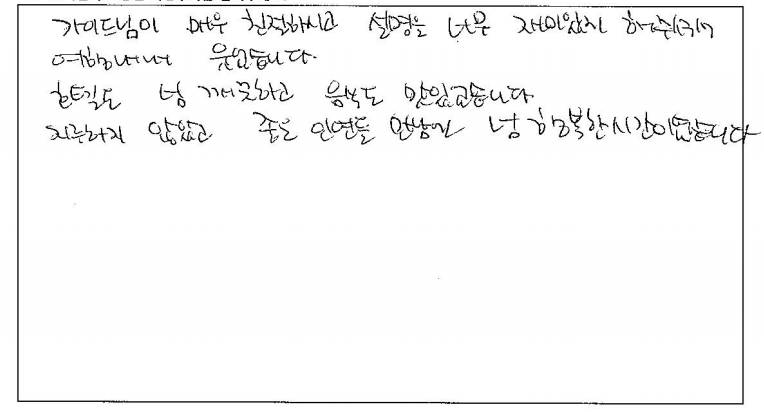 가이드님이 매우 친절하시고 설명을 너무 재미있게 해주셔서
여행내내 웃었습니다.
호텔도 넘 깨끗하고 음식도 맛있었습니다
지루하지 않았고 좋은 인연들 만남에 넘 행복한 시간이었습니다